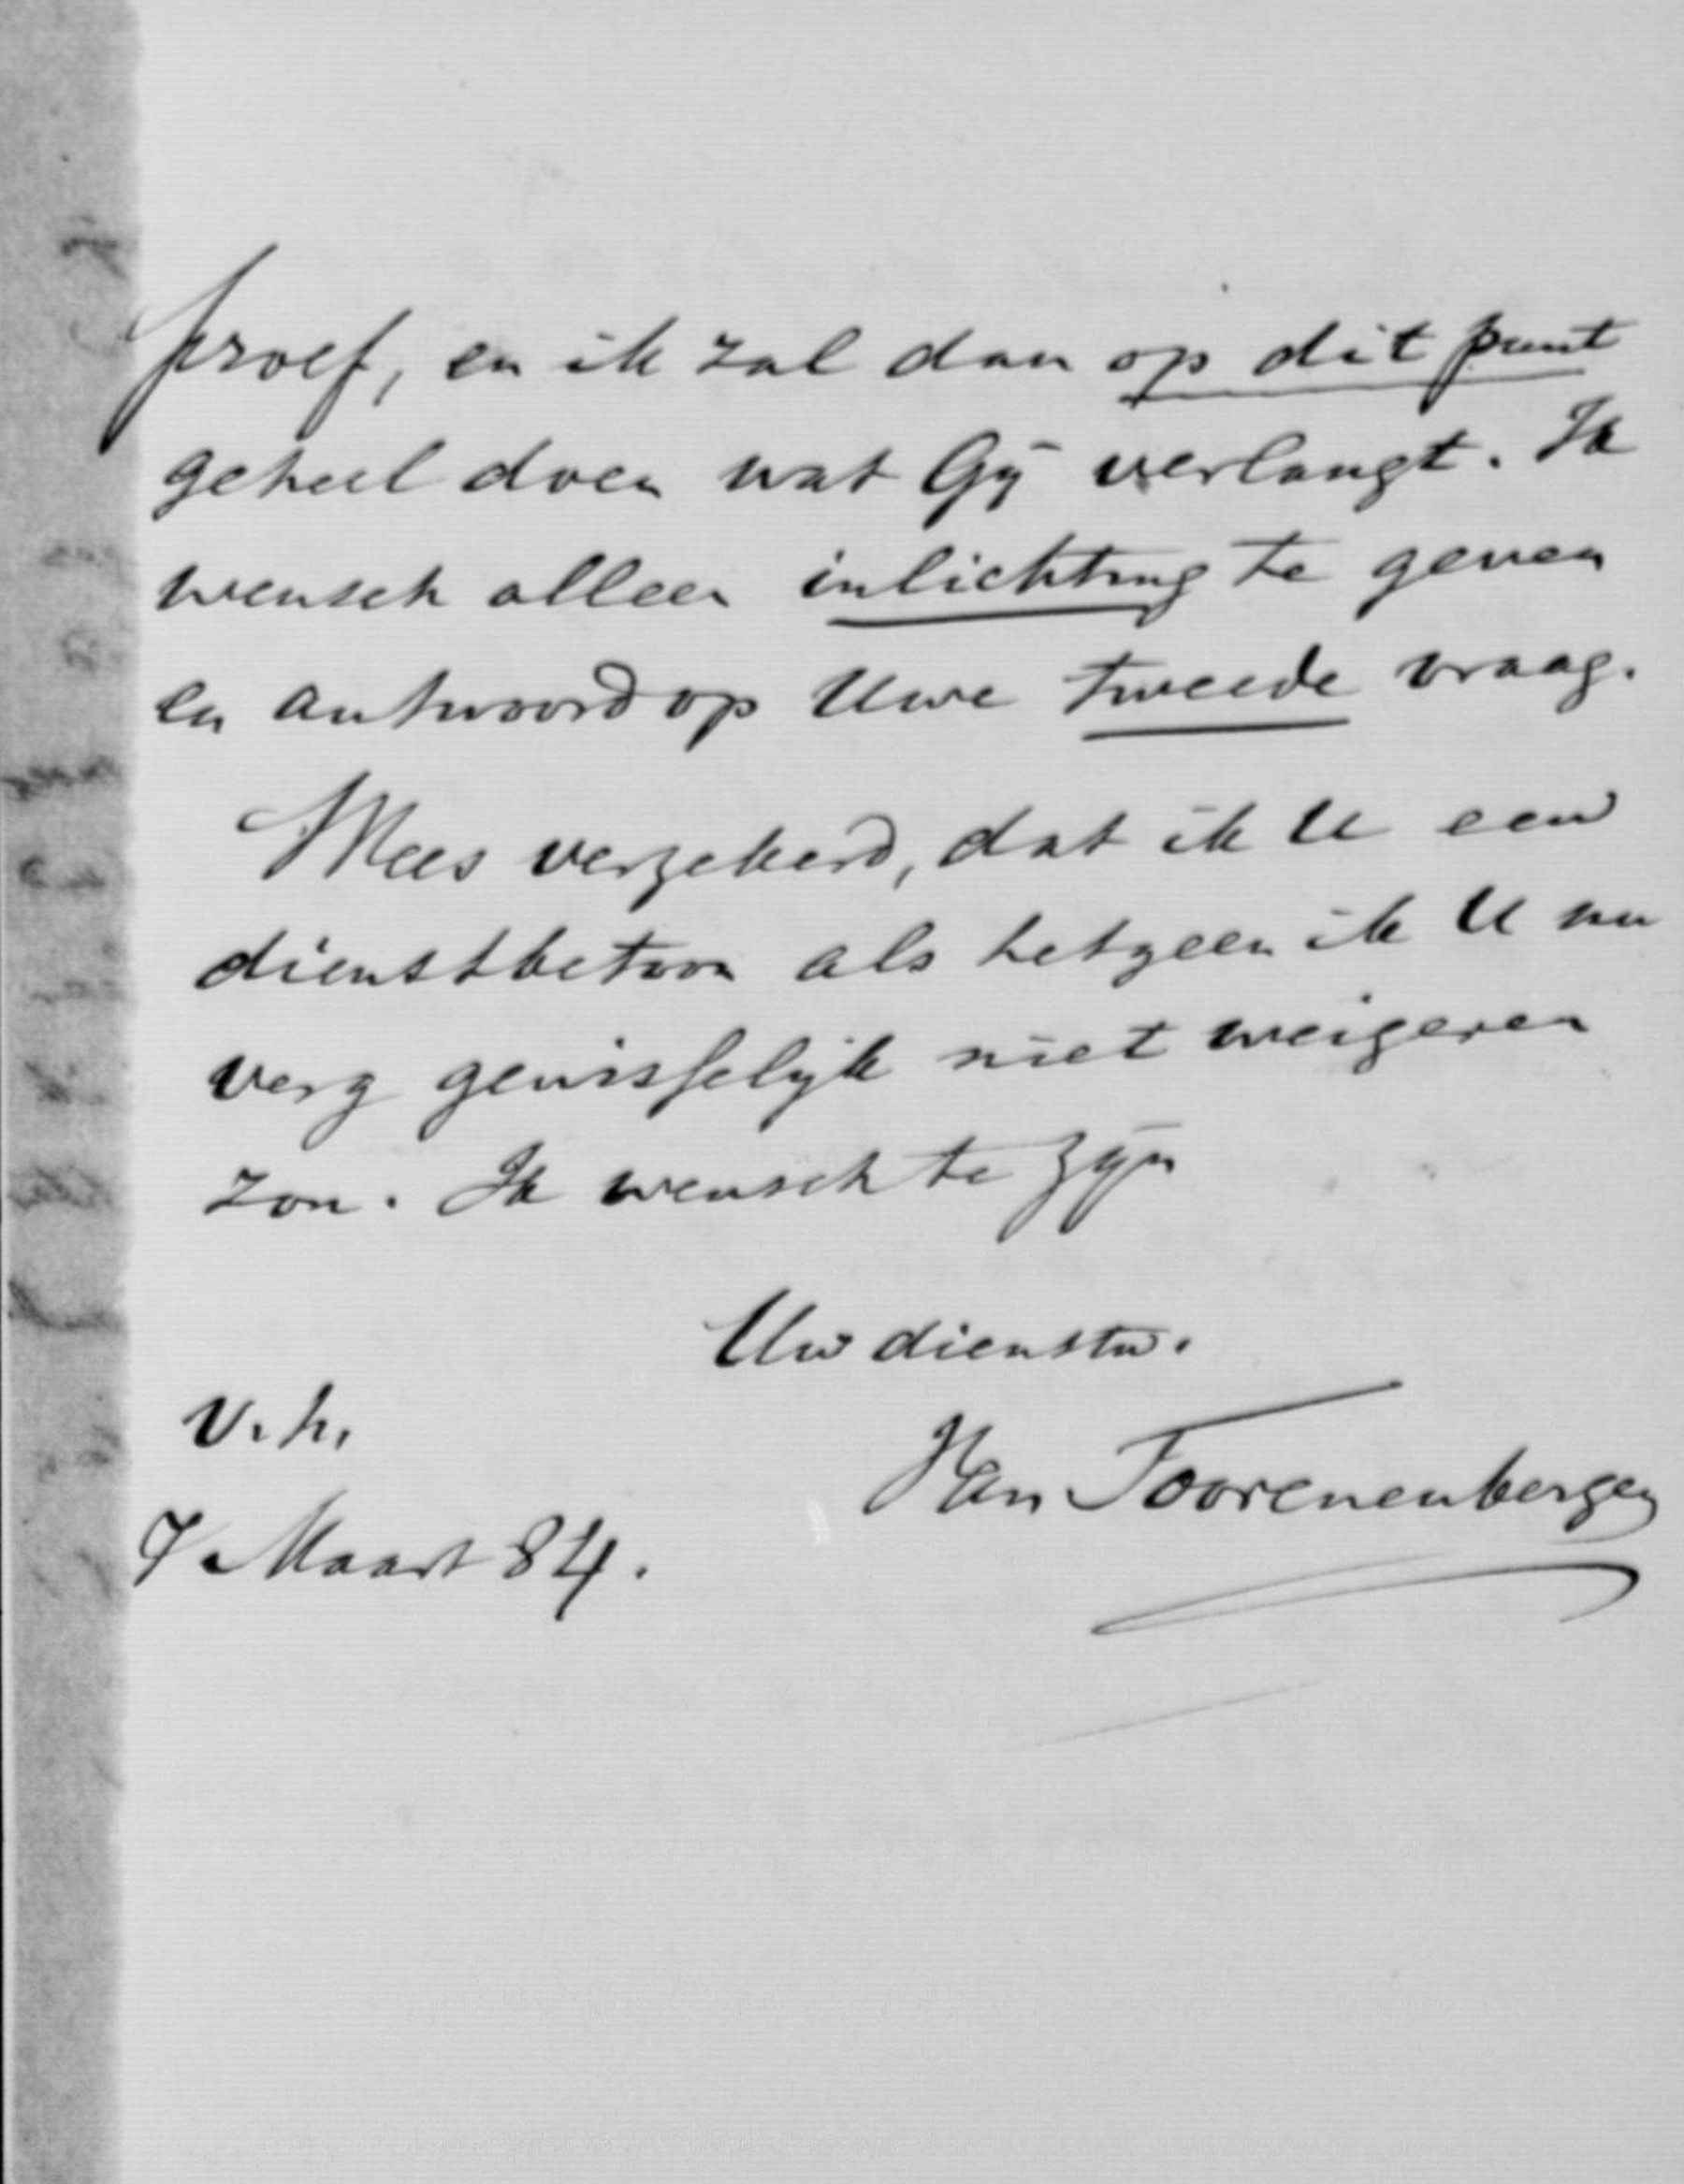 proef, en ik zal dan op dit punt
geheel doen wat Gij verlangt. Ik
wensch alleen inlichting te geven
en antwoord op Uwe tweede vraag.
Wees verzekerd, dat ik U een
dienstbetoon als hetgeen ik U nu
verg gewisselijk niet weigeren
zou. Ik wensch te zijn
Uw dienstw.
v. h.
7 Maart 84.
Van Toorenenbergen